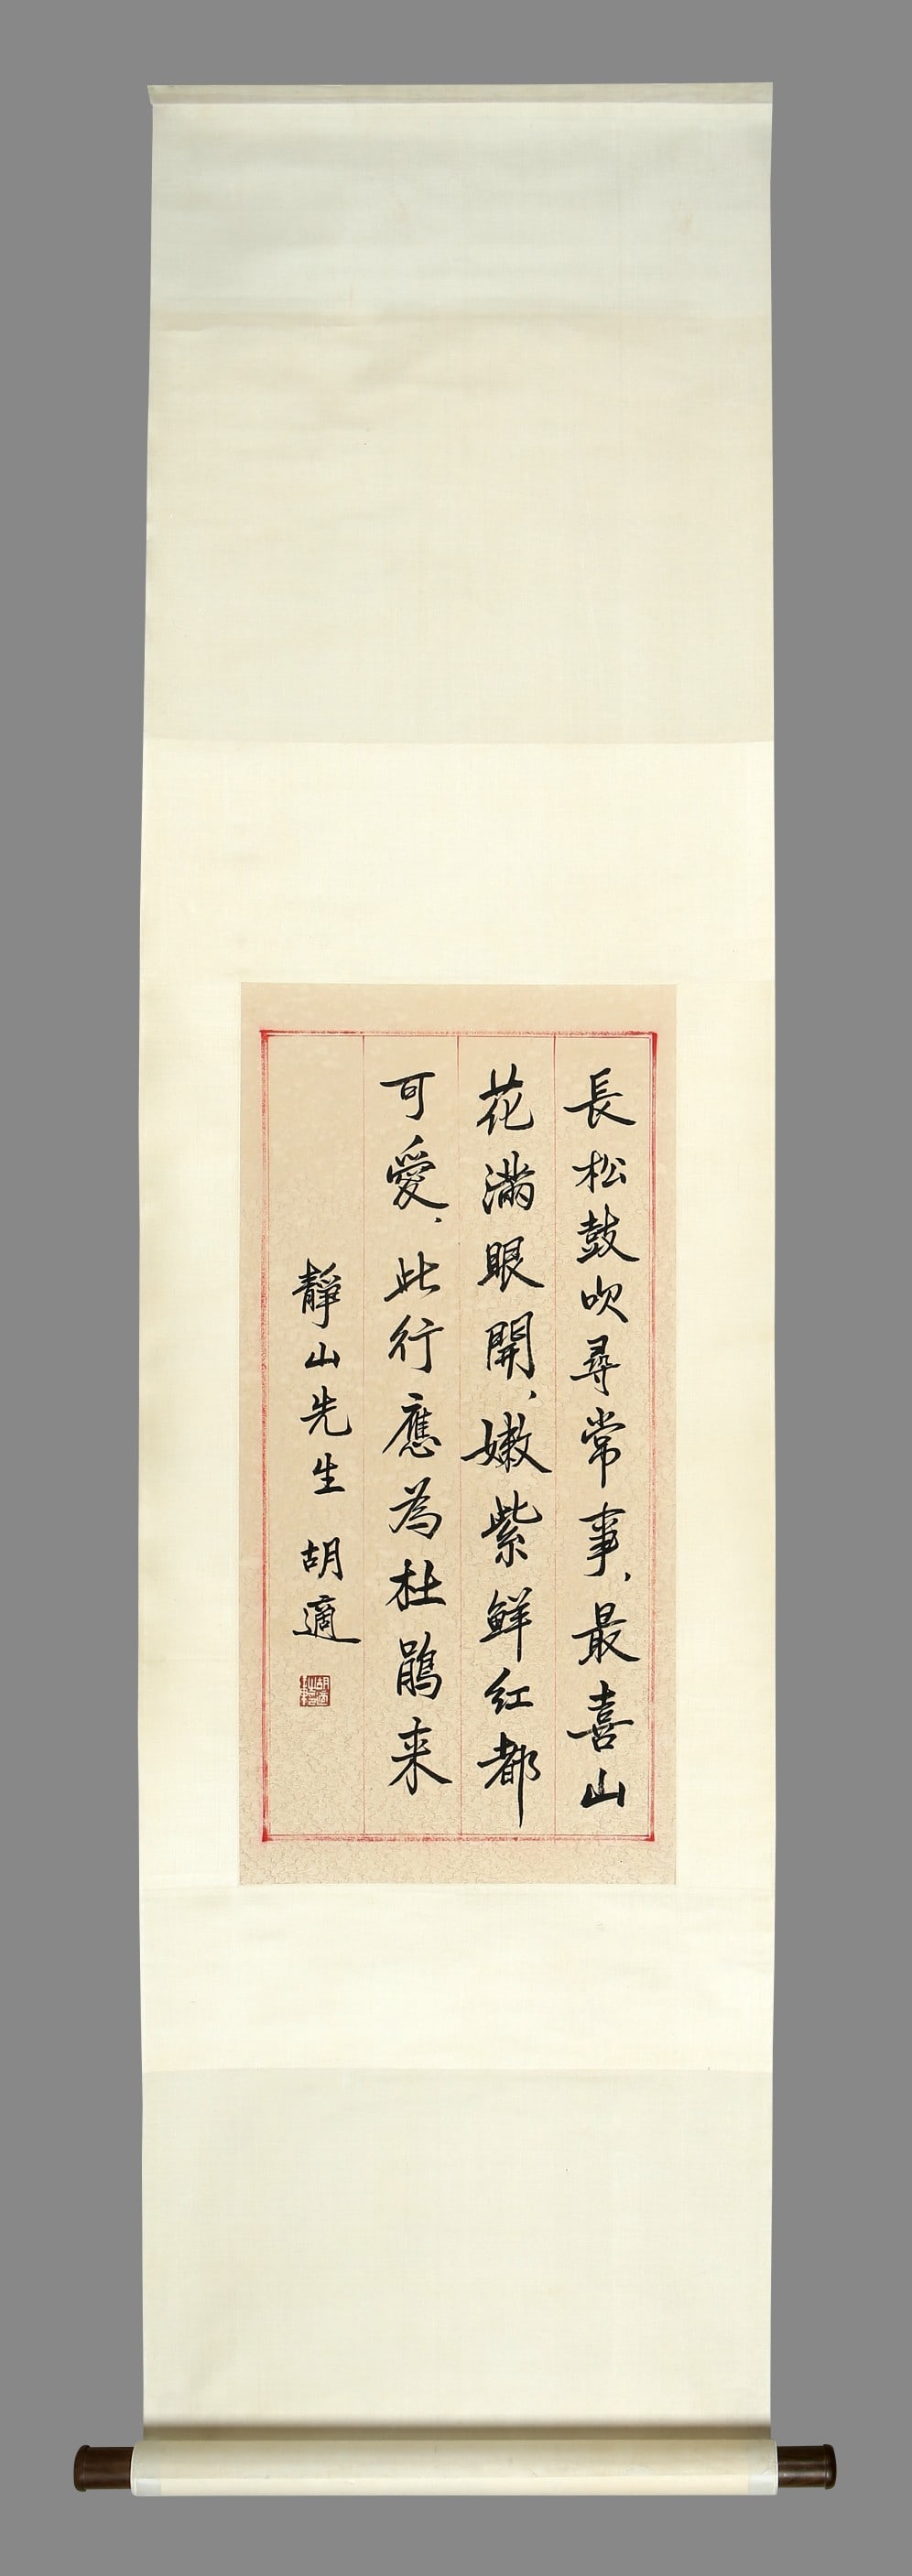 長松鼓吹尋常事、最喜山
花滿眼開、嫩紫鮮红都
可愛、此行應為杜鵑来
靜山先生 胡適